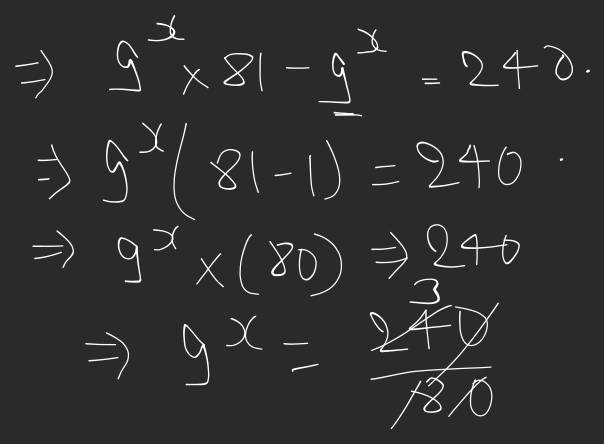 ⇒ 9^x × 81 − 9^x = 240.
⇒ 9^x ( 81 − 1 ) = 240 .
⇒ 9^x × (80) ⇒ 240
3
⇒ 9^x = 240/80